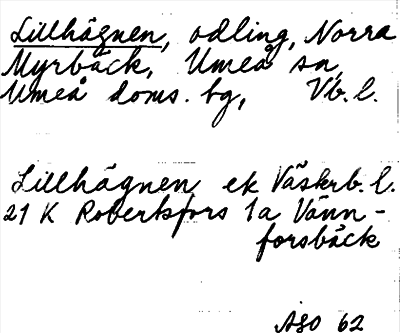 Lillhägnen, odling, Norra
Myrbäck, Umeå sn,
Umeå doms. bg, Vb. l.
Lillhägnen, ek Västerb. l.
21 K Robertsfors 1a Vänn-
forsbäck
ÅSO 62